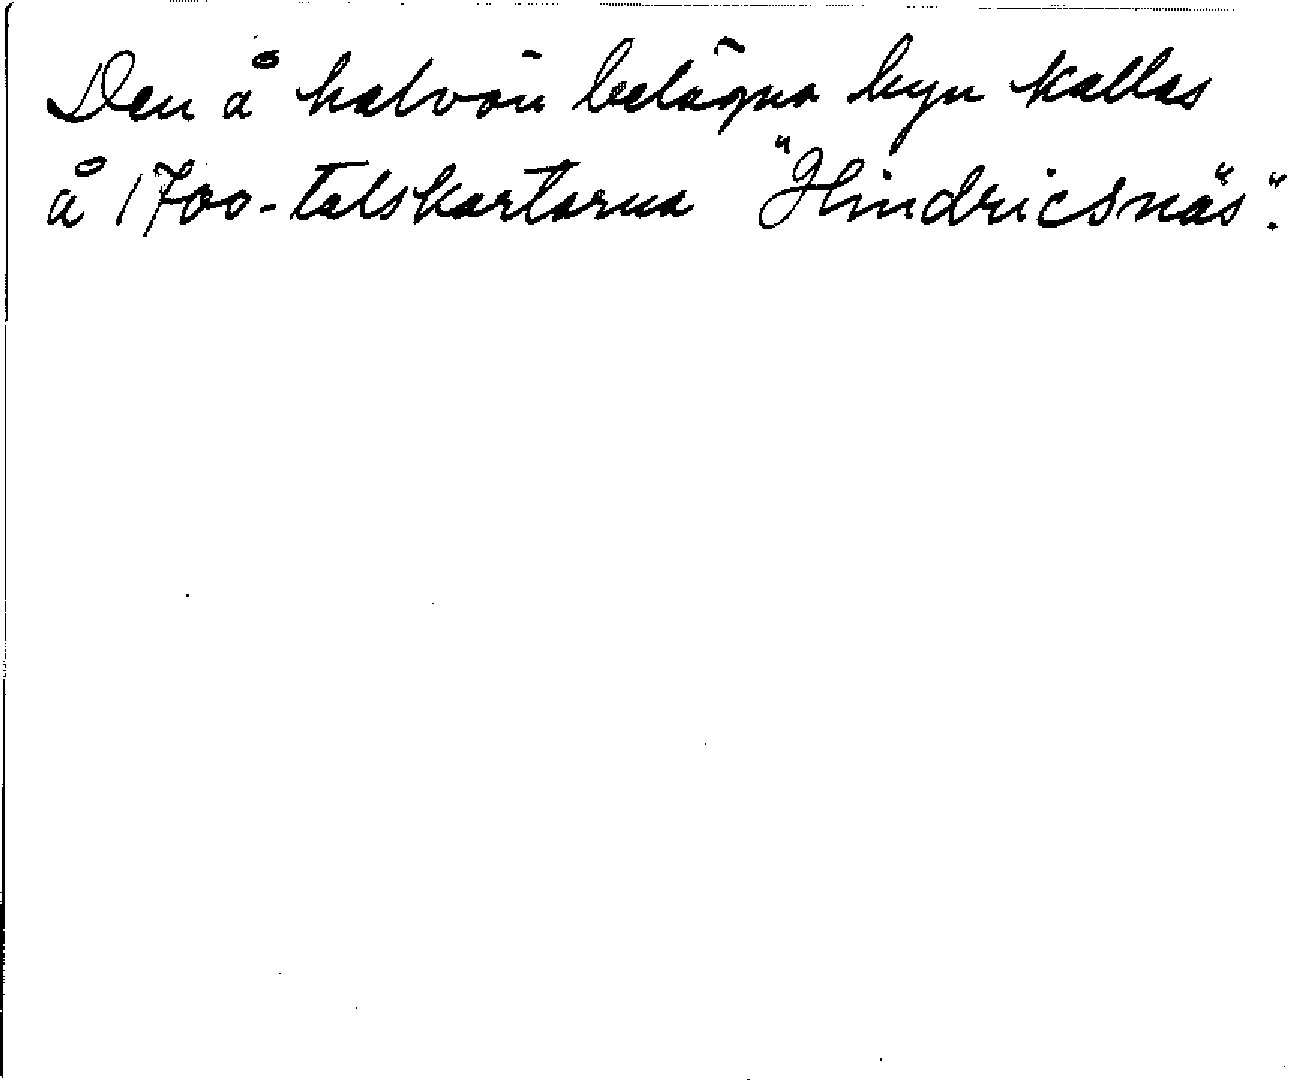 Den å halvön belägna byn kallas
å 1700-talskartorna "Hindricsnäs".